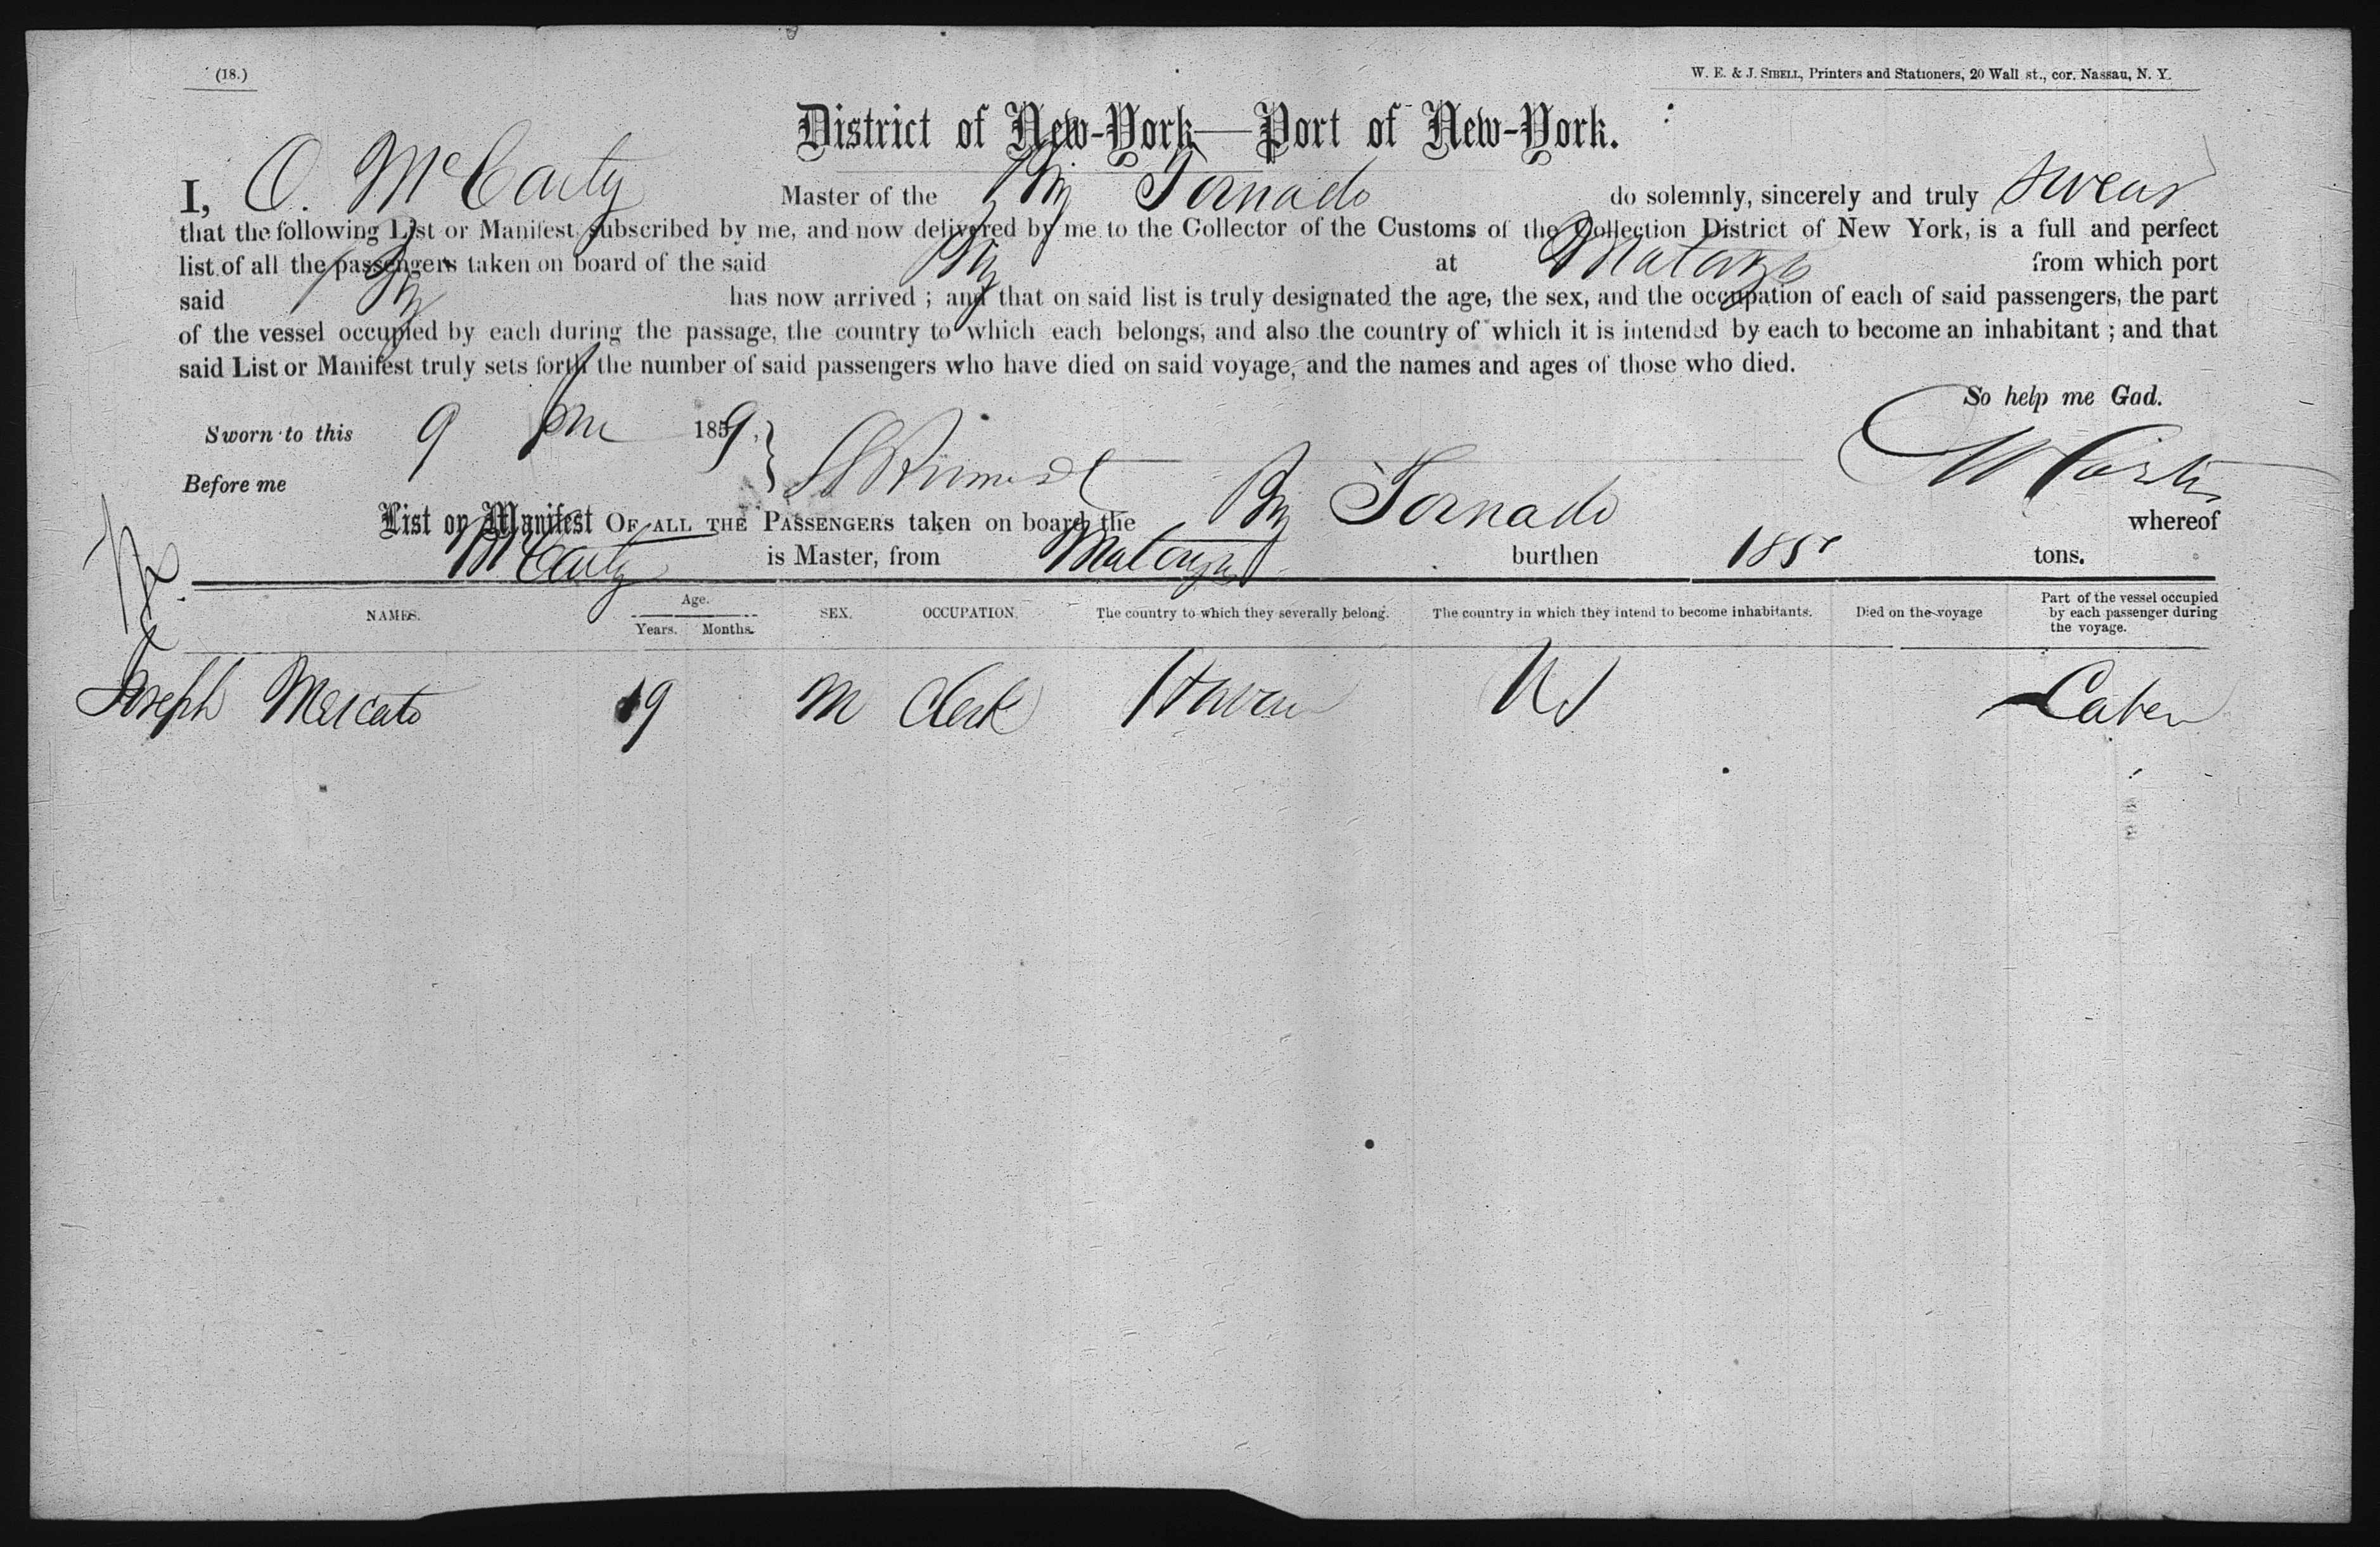 (18.)
W. E. & J. SIBELL, Printers and Stationers, 20 Wall st., cor. Nassau, N. Y.
District of New-York—Port of New-York.
I, O. McCarty Master of the Brig Tornado do solemnly, sincerely and truly swear
that the following List or Manifest, subscribed by me, and now delivered by me to the Collector of the Customs of the Collection District of New York, is a full and perfect
list of all the passengers taken on board of the said Brig at Matanzas from which port
said Brig has now arrived ; and that on said list is truly designated the age, the sex, and the occupation of each of said passengers, the part
of the vessel occupied by each during the passage, the country to which each belongs, and also the country of which it is intended by each to become an inhabitant ; and that
said List or Manifest truly sets forth the number of said passengers who have died on said voyage, and the names and ages of those who died.
So help me God.
Sworn to this 9 1859,
Before me
List or Manifest OF ALL THE PASSENGERS taken on board the Brig Tornado whereof
McCarty is Master, from Matanzas burthen tons.
NAMES. Age. Years. Months. SEX. OCCUPATION. The country to which they severally belong. The country in which they intend to become inhabitants. Died on the voyage Part of the vessel occupied by each passenger during the voyage.
Joseph Mercato 19 M Clerk Havana US Caben